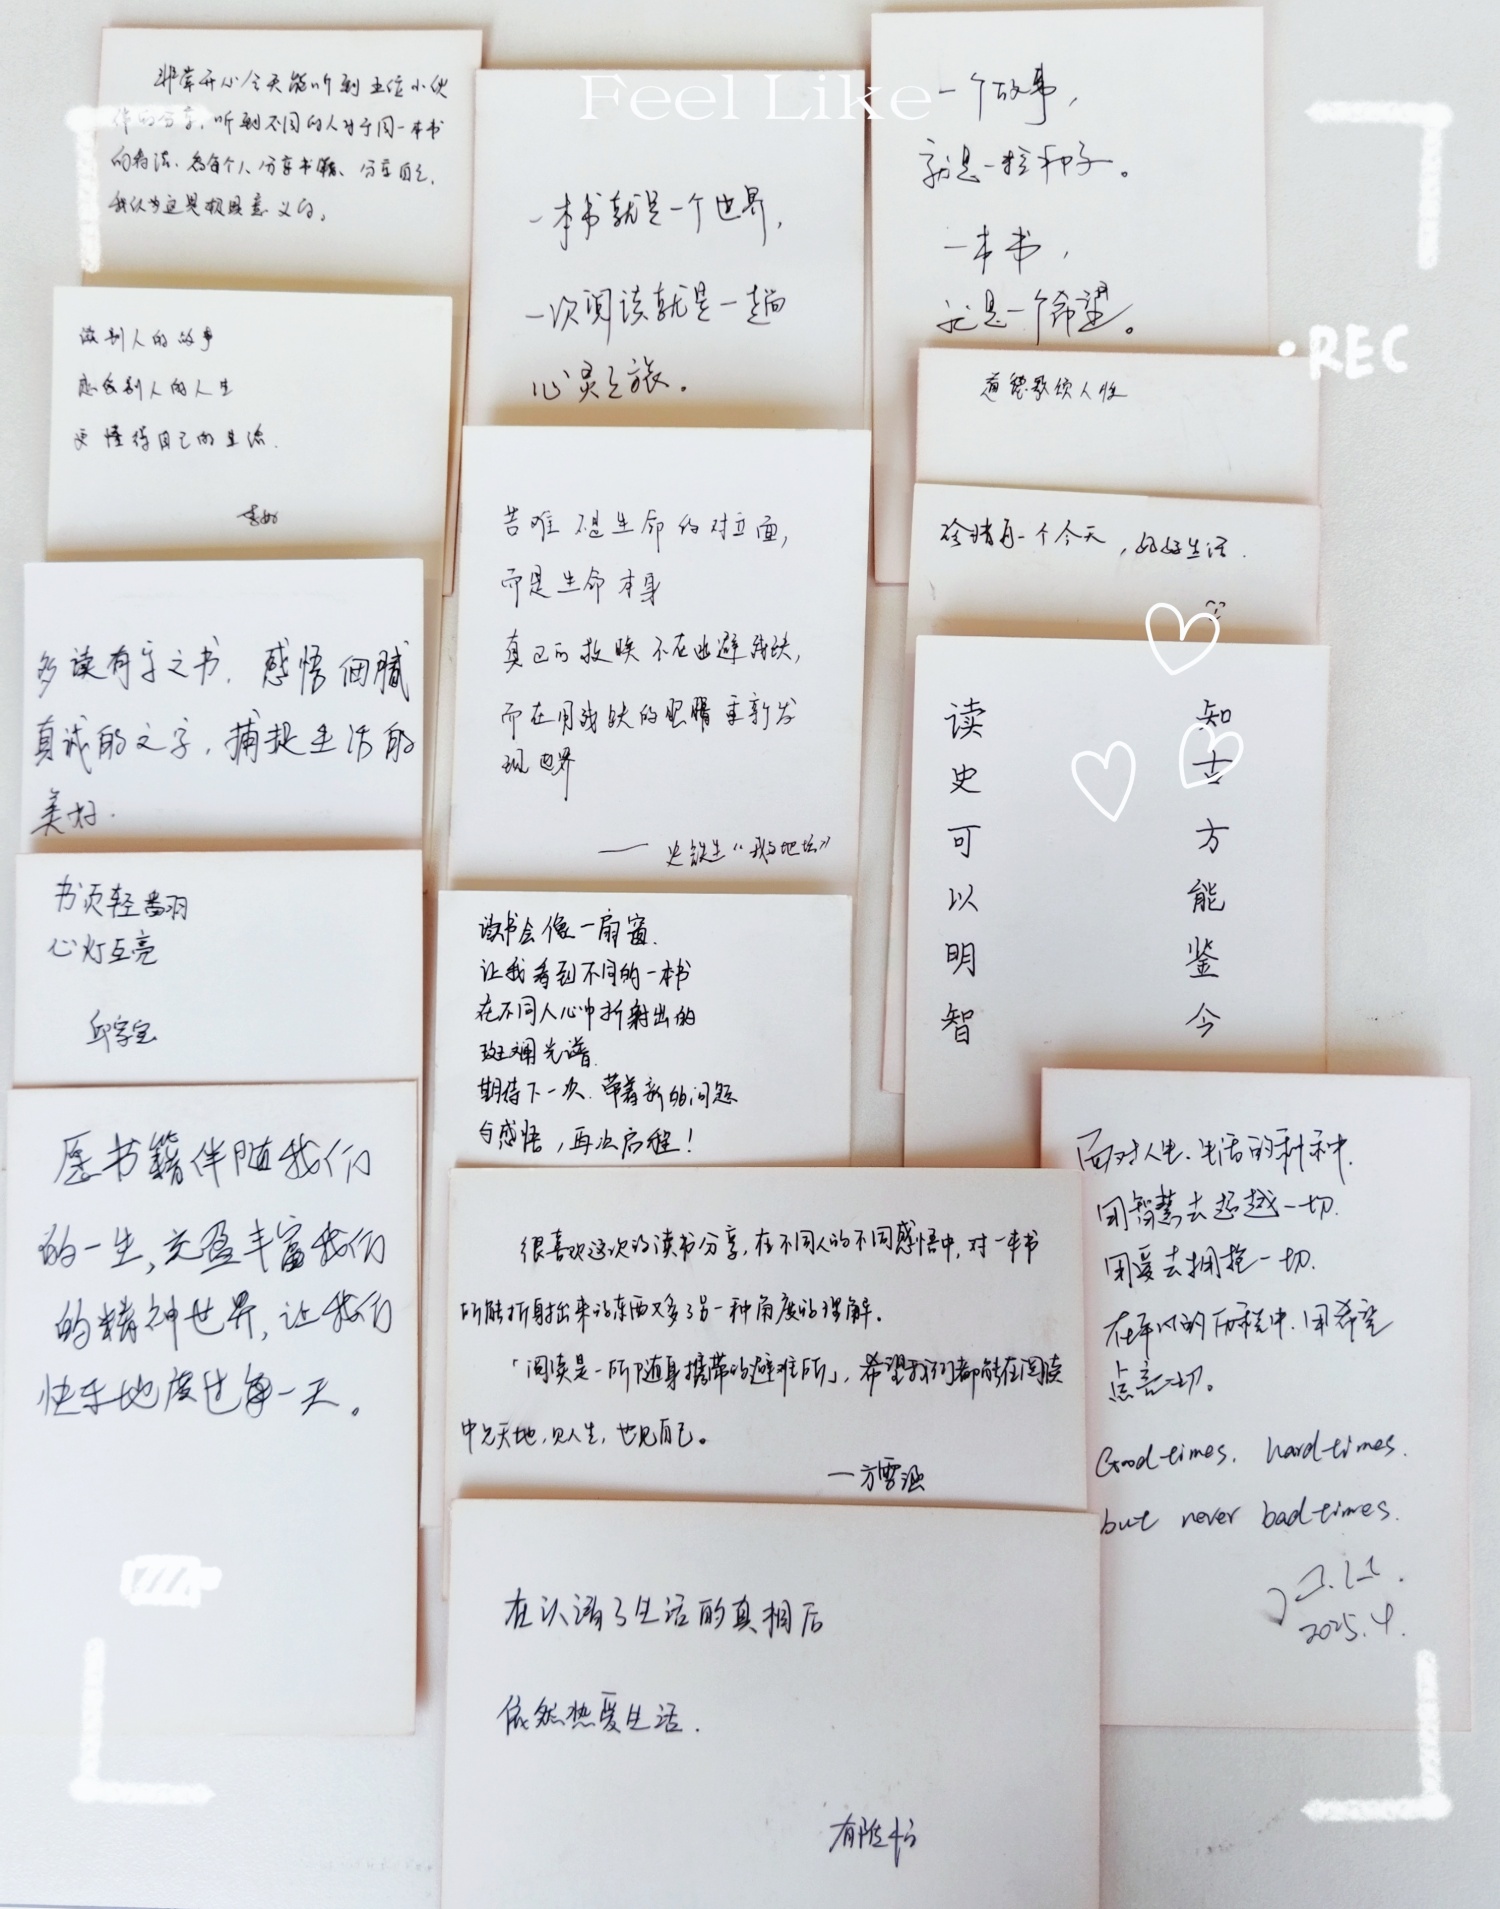 Feel Like
REC
非常开心今天能听到五位小伙
伴的分享，听到不同的人对于同一本书
的看法、为每个人分享书籍、分享自己，
我认为这是极具意义的。
读别人的故事
感受别人的人生
更懂得自己的生活.
多读有字之书，感悟细腻
真诚的文字，捕捉生活的
美好.
书页轻翻
心灯互亮
邱字宝
愿书籍伴随我们
的一生，充盈丰富我们
的精神世界，让我们
快乐地度过每一天。
一本书就是一个世界，
一次阅读就是一趟
心灵之旅。
苦难不是生命的对立面，
而是生命本身
真正的救赎不在逃避残缺，
而在用残缺的眼睛重新发
现世界
——史铁生《我与地坛》
读书会像一扇窗.
让我看到不同的一本书
在不同人心中折射出的
斑斓光谱.
期待下一次.带着新的问题
与感悟，再次启程！
很喜欢这次的读书分享，在不同人的不同感悟中，对一本书
所能折射出来的东西又多了另一种角度的理解。
「阅读是一所随身携带的避难所」，希望我们都能在阅读
中见天地，见人生，也见自己。
—方雪
在认清了生活的真相后
依然热爱生活.
一个故事，
就是一粒种子。
一本书，
就是一个希望。
道德
珍惜每一个今天，好好生活.
读史可以明智
知古方能鉴今
面对人生、生活的种种.
用智慧去超越一切.
用爱去拥抱一切.
在平凡的历程中.用希望
点亮一切。
Good times. hard times.
but never bad times.
2025.4.